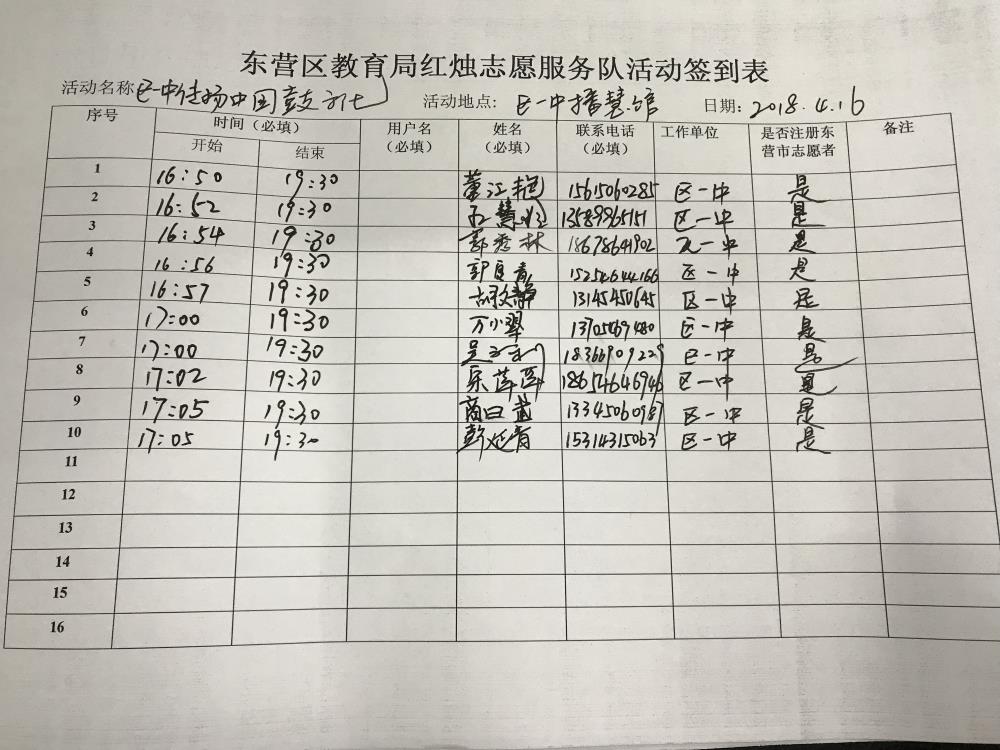 东营区教育局红烛志愿服务队活动签到表
活动名称 区一中佳扬中国鼓 活动地点: 区一中播慧馆 日期: 2018.4.16
序号 时间（必填） 用户名（必填） 姓名（必填） 联系电话（必填） 工作单位 是否注册东营市志愿者 备注
开始 结束
1 16:50 19:30 董江艳 15615060285 区一中 是
2 16:52 19:30 13589965151 区一中 是
3 16:54 19:30 郭秀林 18678641902 区一中 是
4 16:56 19:30 郭良青 15254644166 区一中 是
5 16:57 19:30 胡文静 13145450645 区一中 是
6 17:00 19:30 万小翠 13705469480 区一中 是
7 17:00 19:30 18366909229 区一中 是
8 17:02 19:30 18654646946 区一中 是
9 17:05 19:30 商曰武 13345060987 区一中 是
10 17:05 19:30 彭延青 15314315063 区一中 是
11
12
13
14
15
16